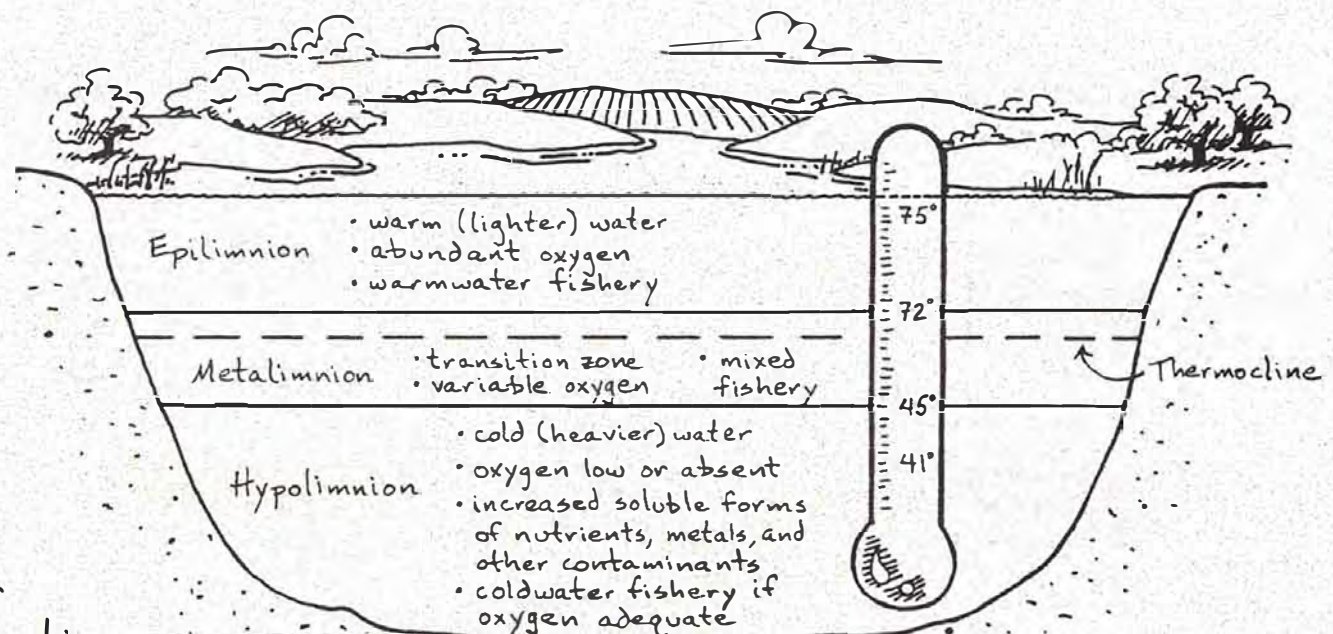 Epilimnion
• warm (lighter) water
• abundant oxygen
• warmwater fishery
75°
72°
Metalimnion
• transition zone
• variable oxygen
• mixed
fishery
Thermocline
45°
Hypolimnion
• cold (heavier) water
• oxygen low or absent
• increased soluble forms
of nutrients, metals, and
other contaminants
• coldwater fishery if
oxygen adequate
41°